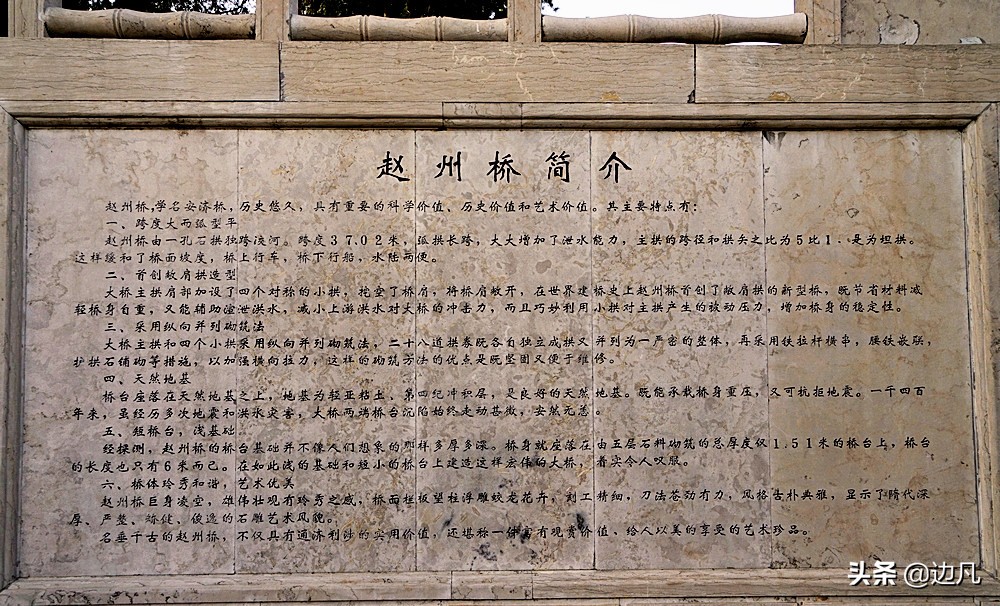 赵州桥简介
赵州桥,学名安济桥,历史悠久,具有重要的科学价值、历史价值和艺术价值。其主要特点有:
一、跨度大而弧型平
赵州桥由一孔石拱独跨洨河。跨度37.02米,弧拱长跨,大大增加了泄水能力,主拱的跨径和拱矢之比为5比1.是为坦拱。
这样缓和了桥面坡度,桥上行车,桥下行船,水陆两便。
二、首创敞肩拱造型
大桥主拱肩部加设了四个对称的小拱,挖空了桥肩,将桥肩敞开,在世界建桥史上赵州桥首创了敞肩拱的新型桥。既节省材料减
轻桥身自重,又能辅助渲泄洪水,减小上游洪水对大桥的冲击力,而且巧妙利用小拱对主拱产生的被动压力,增加桥身的稳定性。
三、采用纵向并列砌筑法
大桥主拱和四个小拱采用纵向并列砌筑法,二十八道拱券既各自独立成拱又并列为一严密的整体,再采用铁拉杆横串,腰铁嵌联,
护拱石铺砌等措施,以加强横向拉力,这样的砌筑方法的优点是既坚固又便于维修。
四、天然地基
桥台座落在天然地基之上,地基为轻亚粘土、第四纪冲积层,是良好的天然地基。既能承载桥身重压,又可抗拒地震。一千四百
年来,虽经历多次地震和洪水灾害,大桥两端桥台沉陷始终走动甚微,安然无恙。
五、短桥台,浅基础
经探测,赵州桥的桥台基础并不像人们想象的那样多厚多深。桥身就座落在由五层石料砌筑的总厚度仅1.51米的桥台上,桥台
的长度也只有6米而已。在如此浅的基础和短小的桥台上建造这样宏伟的大桥,着实令人叹服。
六、桥体玲秀和谐,艺术优美
赵州桥巨身凌空,雄伟壮观有玲秀之感,桥面栏板望柱浮雕蛟龙花卉,刻工精细,刀法苍劲有力,风格古朴典雅,显示了隋代深
厚、严整、矫健、俊逸的石雕艺术风貌。
名垂千古的赵州桥,不仅具有通济利涉的实用价值,还堪称一件富有观赏价值、给人以美的享受的艺术珍品。
头条@边凡